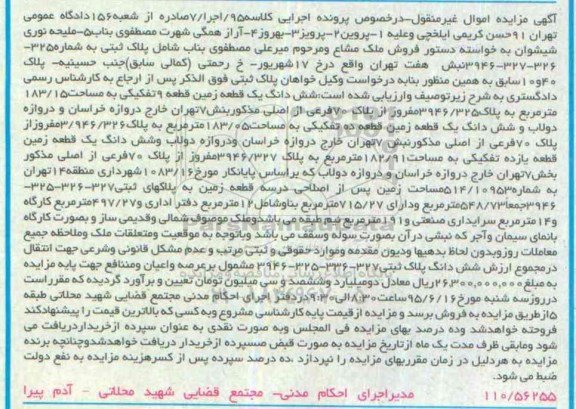 آگهی مزایده اموال غیرمنقول-درخصوص پرونده اجرایی کلاسه۹۵/اجرا/۷صادره از شعبه۱۵۶دادگاه عمومی
تهران ۹۱حسن کریمی ایلخچی وعلیه ۱-پروین۲-پرویز۳-بهروز۴-آراز همگی شهرت مصطفوی بناب۵-ملیحه نوری
شیشوان به خواسته دستور فروش ملک مشاع ومرحوم میرعلی مصطفوی بناب شامل پلاک ثبتی به شماره۳۲۵-
۳۲۶-۳۹۴۶/۳۲۷بخش هفت تهران واقع درخ ۱۷شهریور- خ رحمتی (کمالی سابق)جنب حسینیه- پلاک
۴۰و۱۰سابق به همین منظور بنابه درخواست وکیل خواهان پلاک ثبتی فوق الذکر پس از ارجاع به کارشناس رسمی
دادگستری به شرح زیرتوصیف وارزیابی شده است:شش دانگ یک قطعه زمین قطعه ۹تفکیکی به مساحت۱۸۳/۱۵
مترمربع به پلاک۳۹۴۶/۳۲۵مفروز از پلاک ۷۰فرعی از اصلی مذکوربخش۷تهران خارج دروازه خراسان و دروازه
دولاب و شش دانگ یک قطعه زمین قطعه ده تفکیکی به مساحت۱۸۳/۰۵مترمربع به پلاک۳۹۴۶/۳۲۶مفروزاز
پلاک ۷۰فرعی از اصلی مذکوربخش۷تهران خارج دروازه خراسان ودروازه دولاب وشش دانگ یک قطعه زمین
قطعه یازده تفکیکی به مساحت۱۸۲/۹۱مترمربع به پلاک ۳۹۴۶/۳۲۷مفروز از پلاک ۷۰فرعی از اصلی مذکور
بخش۷تهران خارج دروازه خراسان و دروازه دولاب که براساس پایانکار مورخ۸۳/۱۶/۱۰شهرداری منطقه۱۴تهران
به شماره۵۱۴/۱۰۹۵۳مساحت زمین پس از اصلاحی درسه قطعه زمین به پلاکهای ثبتی۳۲۷-۳۲۶-۳۲۵-
۳۹۴۶جمعا۵۴۸/۷۳مترمربع ودارای ۷۱۵/۲۷مترمربع بناوشامل۱۲مترمربع دفتر اداری و۴۹۷/۲۷مترمربع کارگاه
و۱۴مترمربع سرایداری صنعتی و۱۹۱مترمربع نیم طبقه می باشدوملک موصوف شمالی وقدیمی ساز و بصورت کارگاه
بانمای سیمان وآجر که نبشی در آن بصورت سوله وسقف می باشد وباتوجه به موقعیت ومتعلقات ملک وملاحظه جمیع
معاملات روزوبدون لحاظ بدهیها ودیون مقدمه وموارد حقوقی و ثبتی مرتب و عدم مشکل قانونی وشرعی جهت انتقال
درمجموع ارزش شش دانگ پلاک ثبتی۳۲۷-۳۲۶-۳۲۵-۳۹۴۶مشمول برعرصه واعیان ومنافع جهت پایه مزایده
به مبلغ۲۶،۳۰۰،۰۰۰،۰۰۰ریال معادل دومیلیارد وششصد و سی میلیون تومان تعیین و برآورد گردیده که مقرراست
درروزسه شنبه مورخ۹۵/۶/۱۶ساعت۸:۳۰الی۹:۳۰دردفتر اجرای احکام مدنی مجتمع قضایی شهید محلاتی طبقه
۵ازطریق مزایده به فروش برسد و مزایده از قیمت پایه کارشناسی مشروع وبه کسی که بالاترین قیمت را پیشنهادکند
فروخته خواهدشد وده درصد بهای مزایده فی المجلس وبه صورت نقدی به عنوان سپرده ازخریداردریافت می
شود ومابقی ظرف مدت یک ماه ازتاریخ مزایده به صورت قبض سپرده ازخریدار دریافت خواهدشدوچنانچه برنده
مزایده به هردلیل در زمان مقرربهای مزایده را نپردازد ،ده درصد سپرده پس از کسرهزینه مزایده به نفع دولت
ضبط می شود.
۱۱۰/۵۶۲۵۵ مدیراجرای احکام مدنی- مجتمع قضایی شهید محلاتی - آدم پیرا